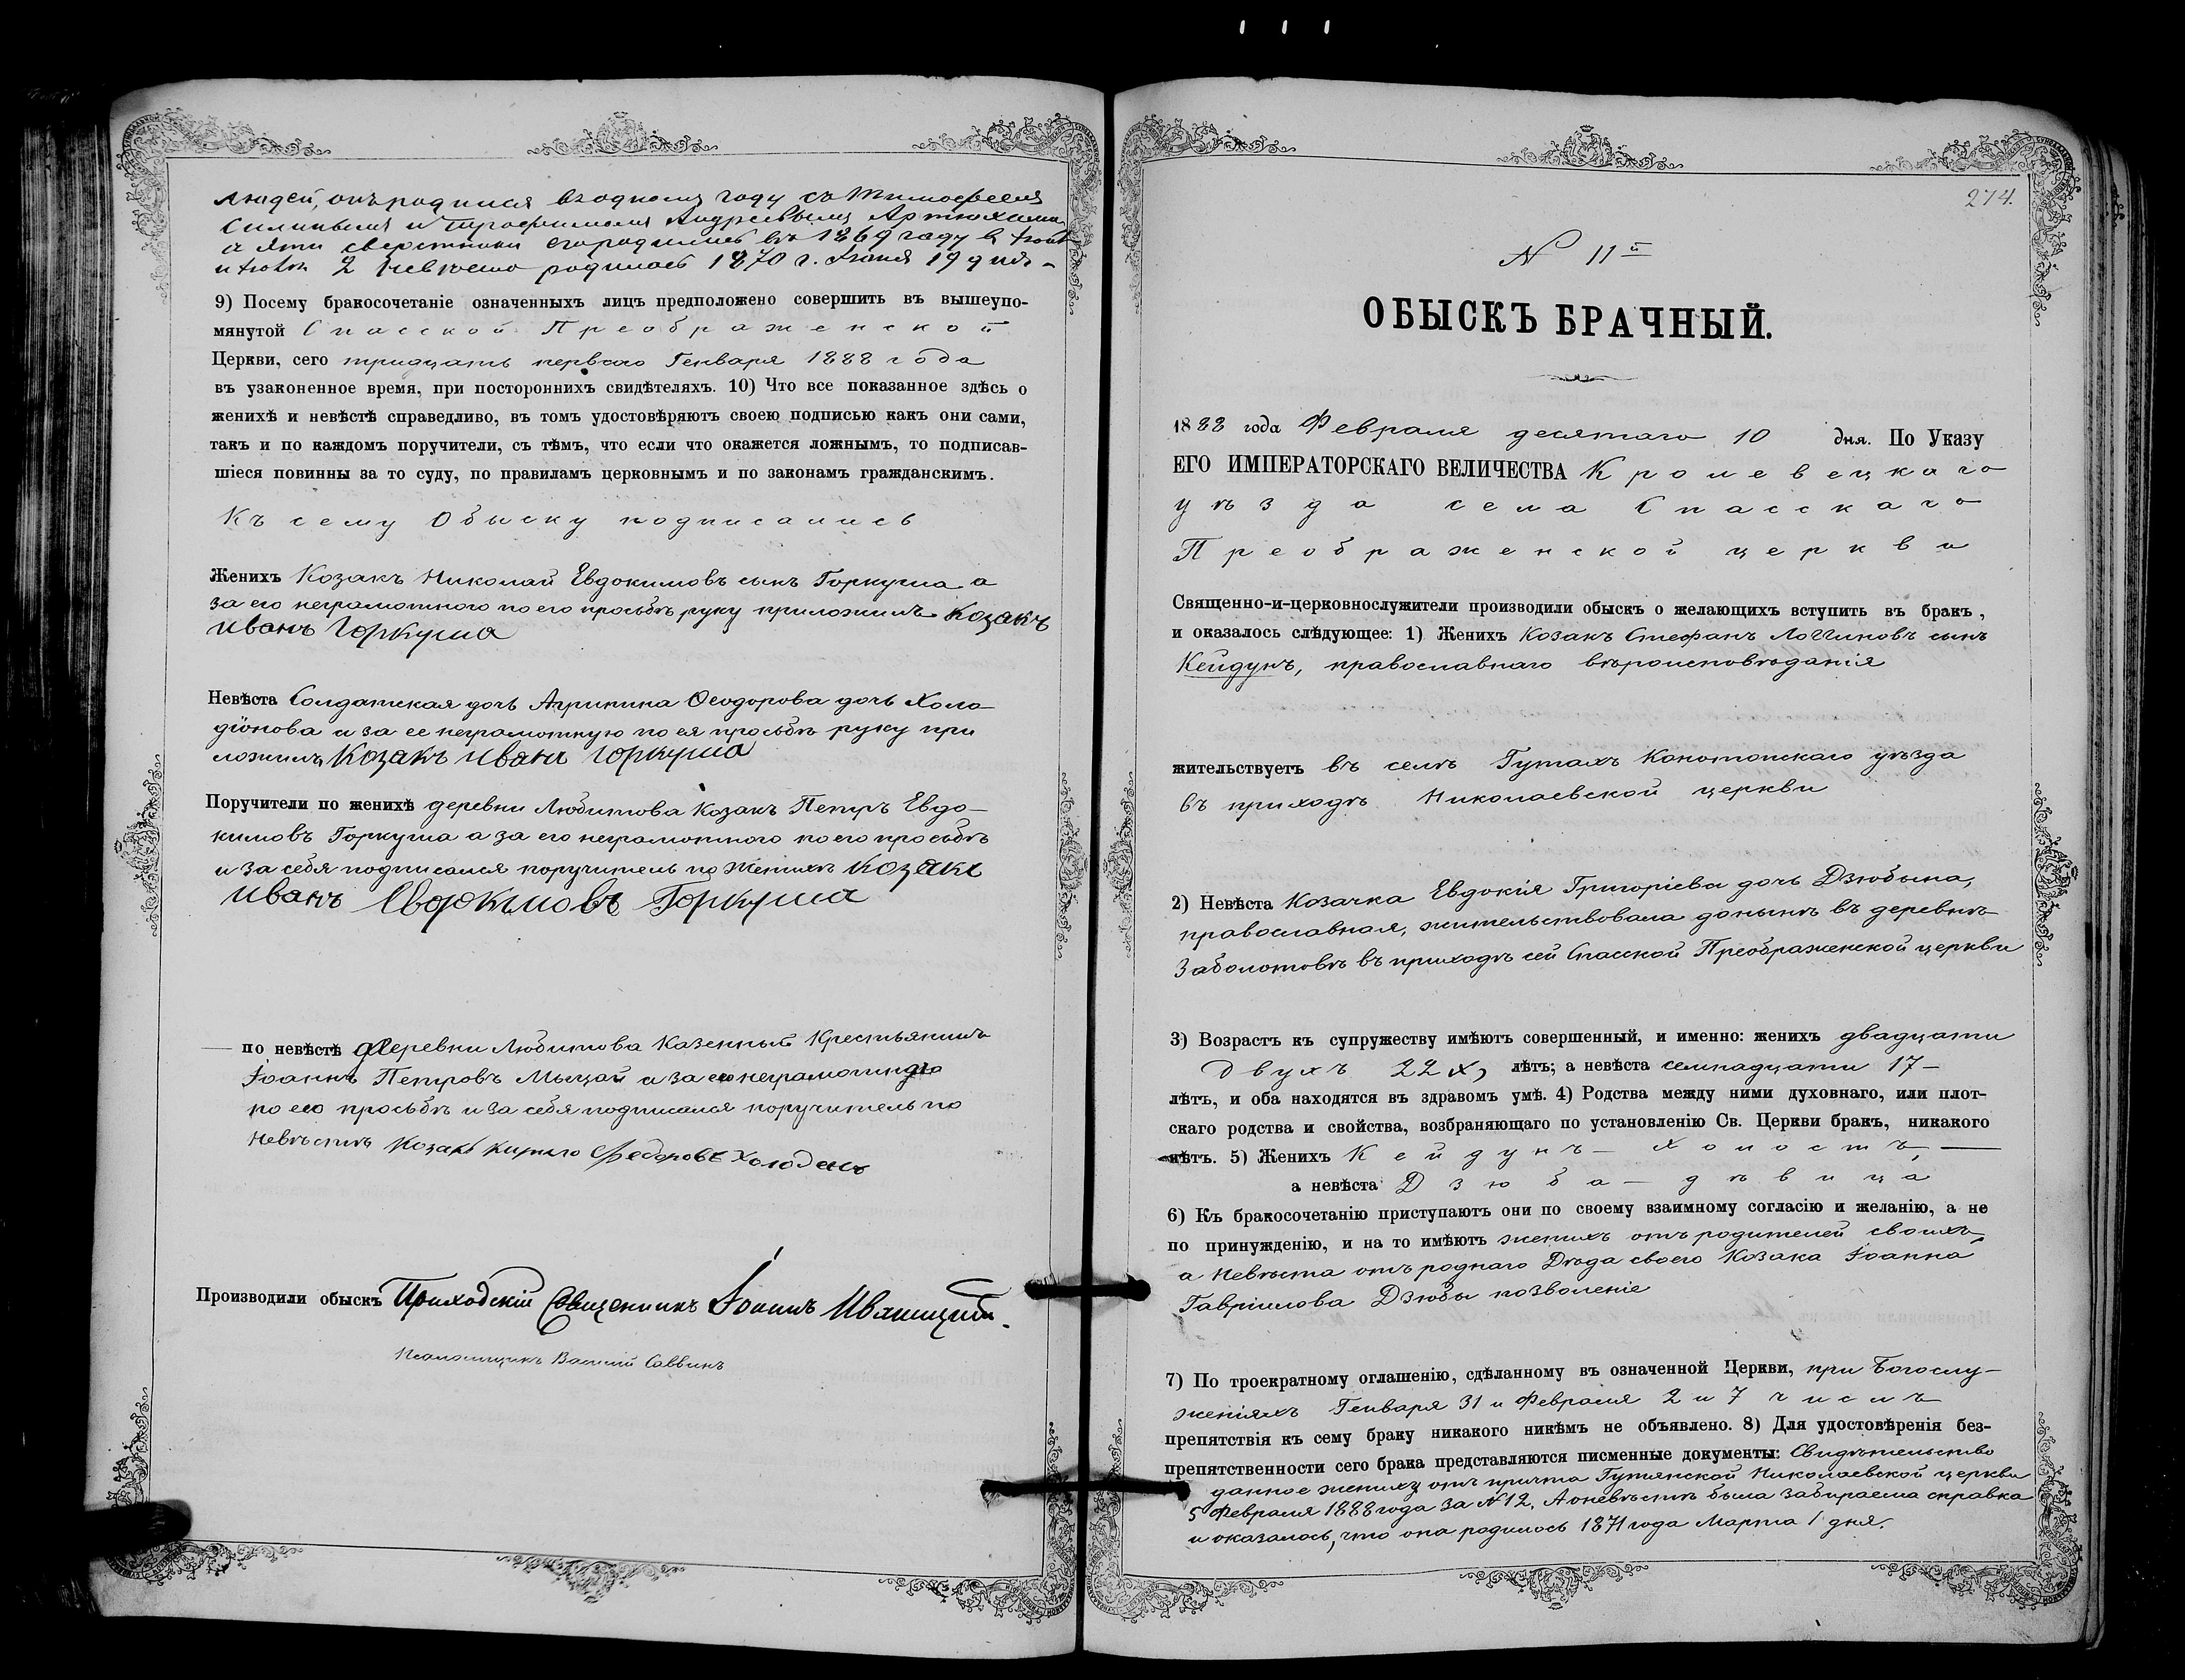 людей, онъ родился въ одномъ году съ Тимофеемъ
и Трофимомъ Андреевымъ
а эти сверстники его родились въ 1869 году
2 невѣста родилась 1870 г. Іюня 19 дня -
9) Посему бракосочетаніе означенныхъ лицъ предположено совершить въ вышеупо-
мянутой Спасской Преображенской
Церкви, сего тридцать перваго Генваря 1888 года
въ узаконенное время, при постороннихъ свидѣтеляхъ. 10) Что все показанное здѣсь о
женихѣ и невѣстѣ справедливо, въ томъ удостовѣряютъ своею подписью какъ они сами,
такъ и по каждомъ поручители, съ тѣмъ, что если что окажется ложнымъ, то подписав-
шіеся повинны за то суду, по правиламъ церковнымъ и по законамъ гражданскимъ.
Къ сему Обыску подписались
Женихъ Козакъ Николай Евдокимовъ сынъ Горкуша а
за его неграмотного по его просьбѣ руку приложилъ Козакъ
иванъ Горкуша
Невѣста Солдатская дочь Агрипина Ѳеодорова дочь Холо-
діонова и за ее неграмотную по ея просьбѣ руку при
ложилъ Козакъ иванъ горкуша
Поручители по женихѣ деревни Любитова Козакъ Петръ Евдо-
кимовъ Горкуша а за его неграмотного по его просьбѣ
и за себя подписался поручитель по женихѣ Козакъ
иванъ Евдокимовъ Горкуша
по невѣстѣ деревни Любитова Казенный Крестьянинъ
Іоаннъ Петровъ Мыцай и за его неграмотного
по его просьбѣ и за себя подписался поручитель по
невѣстѣ Козакъ кирило Федоровъ холоденъ
Производили обыскъ Приходскій Священникъ Іоаннъ Иваницкій.
Псаломщикъ Василій Саввинъ
274.
N 11й
ОБЫСКЪ БРАЧНЫЙ.
1888 года Февраля десятаго 10 дня. По Указу
ЕГО ИМПЕРАТОРСКАГО ВЕЛИЧЕСТВА Кролевецкаго
уѣзда села Спасскаго
Преображенской церкви
Священно-и-церковнослужители производили обыскъ о желающихъ вступить въ бракъ,
и оказалось слѣдующее: 1) Женихъ Козакъ Стефанъ Логгиновъ сынъ
Кейдунъ, православнаго вѣроисповѣданія
жительствуетъ въ селѣ Гутахъ Конотопскаго уѣзда
въ приходѣ Николаевской церкви
2) Невѣста Козачка Евдокія Григоріева дочь Дзюбына,
православная, жительствовала донынѣ въ деревнѣ
Заболотовѣ въ приходѣ сей Спасской Преображенской церкви
3) Возрастъ къ супружеству имѣютъ совершенный, и именно: женихъ двадцати
двухъ 22х, лѣтъ; а невѣста семнадцати 17-
лѣтъ, и оба находятся въ здравомъ умѣ. 4) Родства между ними духовнаго, или плот-
скаго родства и свойства, возбраняющаго по установленію Св. Церкви бракъ, никакого
нѣтъ. 5) Женихъ Кейдунъ - холостъ,
а невѣста Дзюба - дѣвица
6) Къ бракосочетанію приступаютъ они по своему взаимному согласію и желанію, а не
по принужденію, и на то имѣютъ женихъ отъ родителей своихъ,
а невѣста отъ роднаго Дѣда своего Козака Іоанна
Гавріилова Дзюбы позволеніе
7) По троекратному оглашенію, сдѣланному въ означенной Церкви, при Богослу-
женіяхъ Генваря 31 и Февраля 2 и 7 числъ
препятствія къ сему браку никакого никѣмъ не объявлено. 8) Для удостовѣренія без-
препятственности сего брака представляются писменные документы: Свидѣтельство
данное жениху отъ причта Гутянской Николаевской церкви
5 Февраля 1888 года за N 12, А о невѣстѣ была забираема справка
и оказалось, что она родилось 1871 года Марта 1 дня.